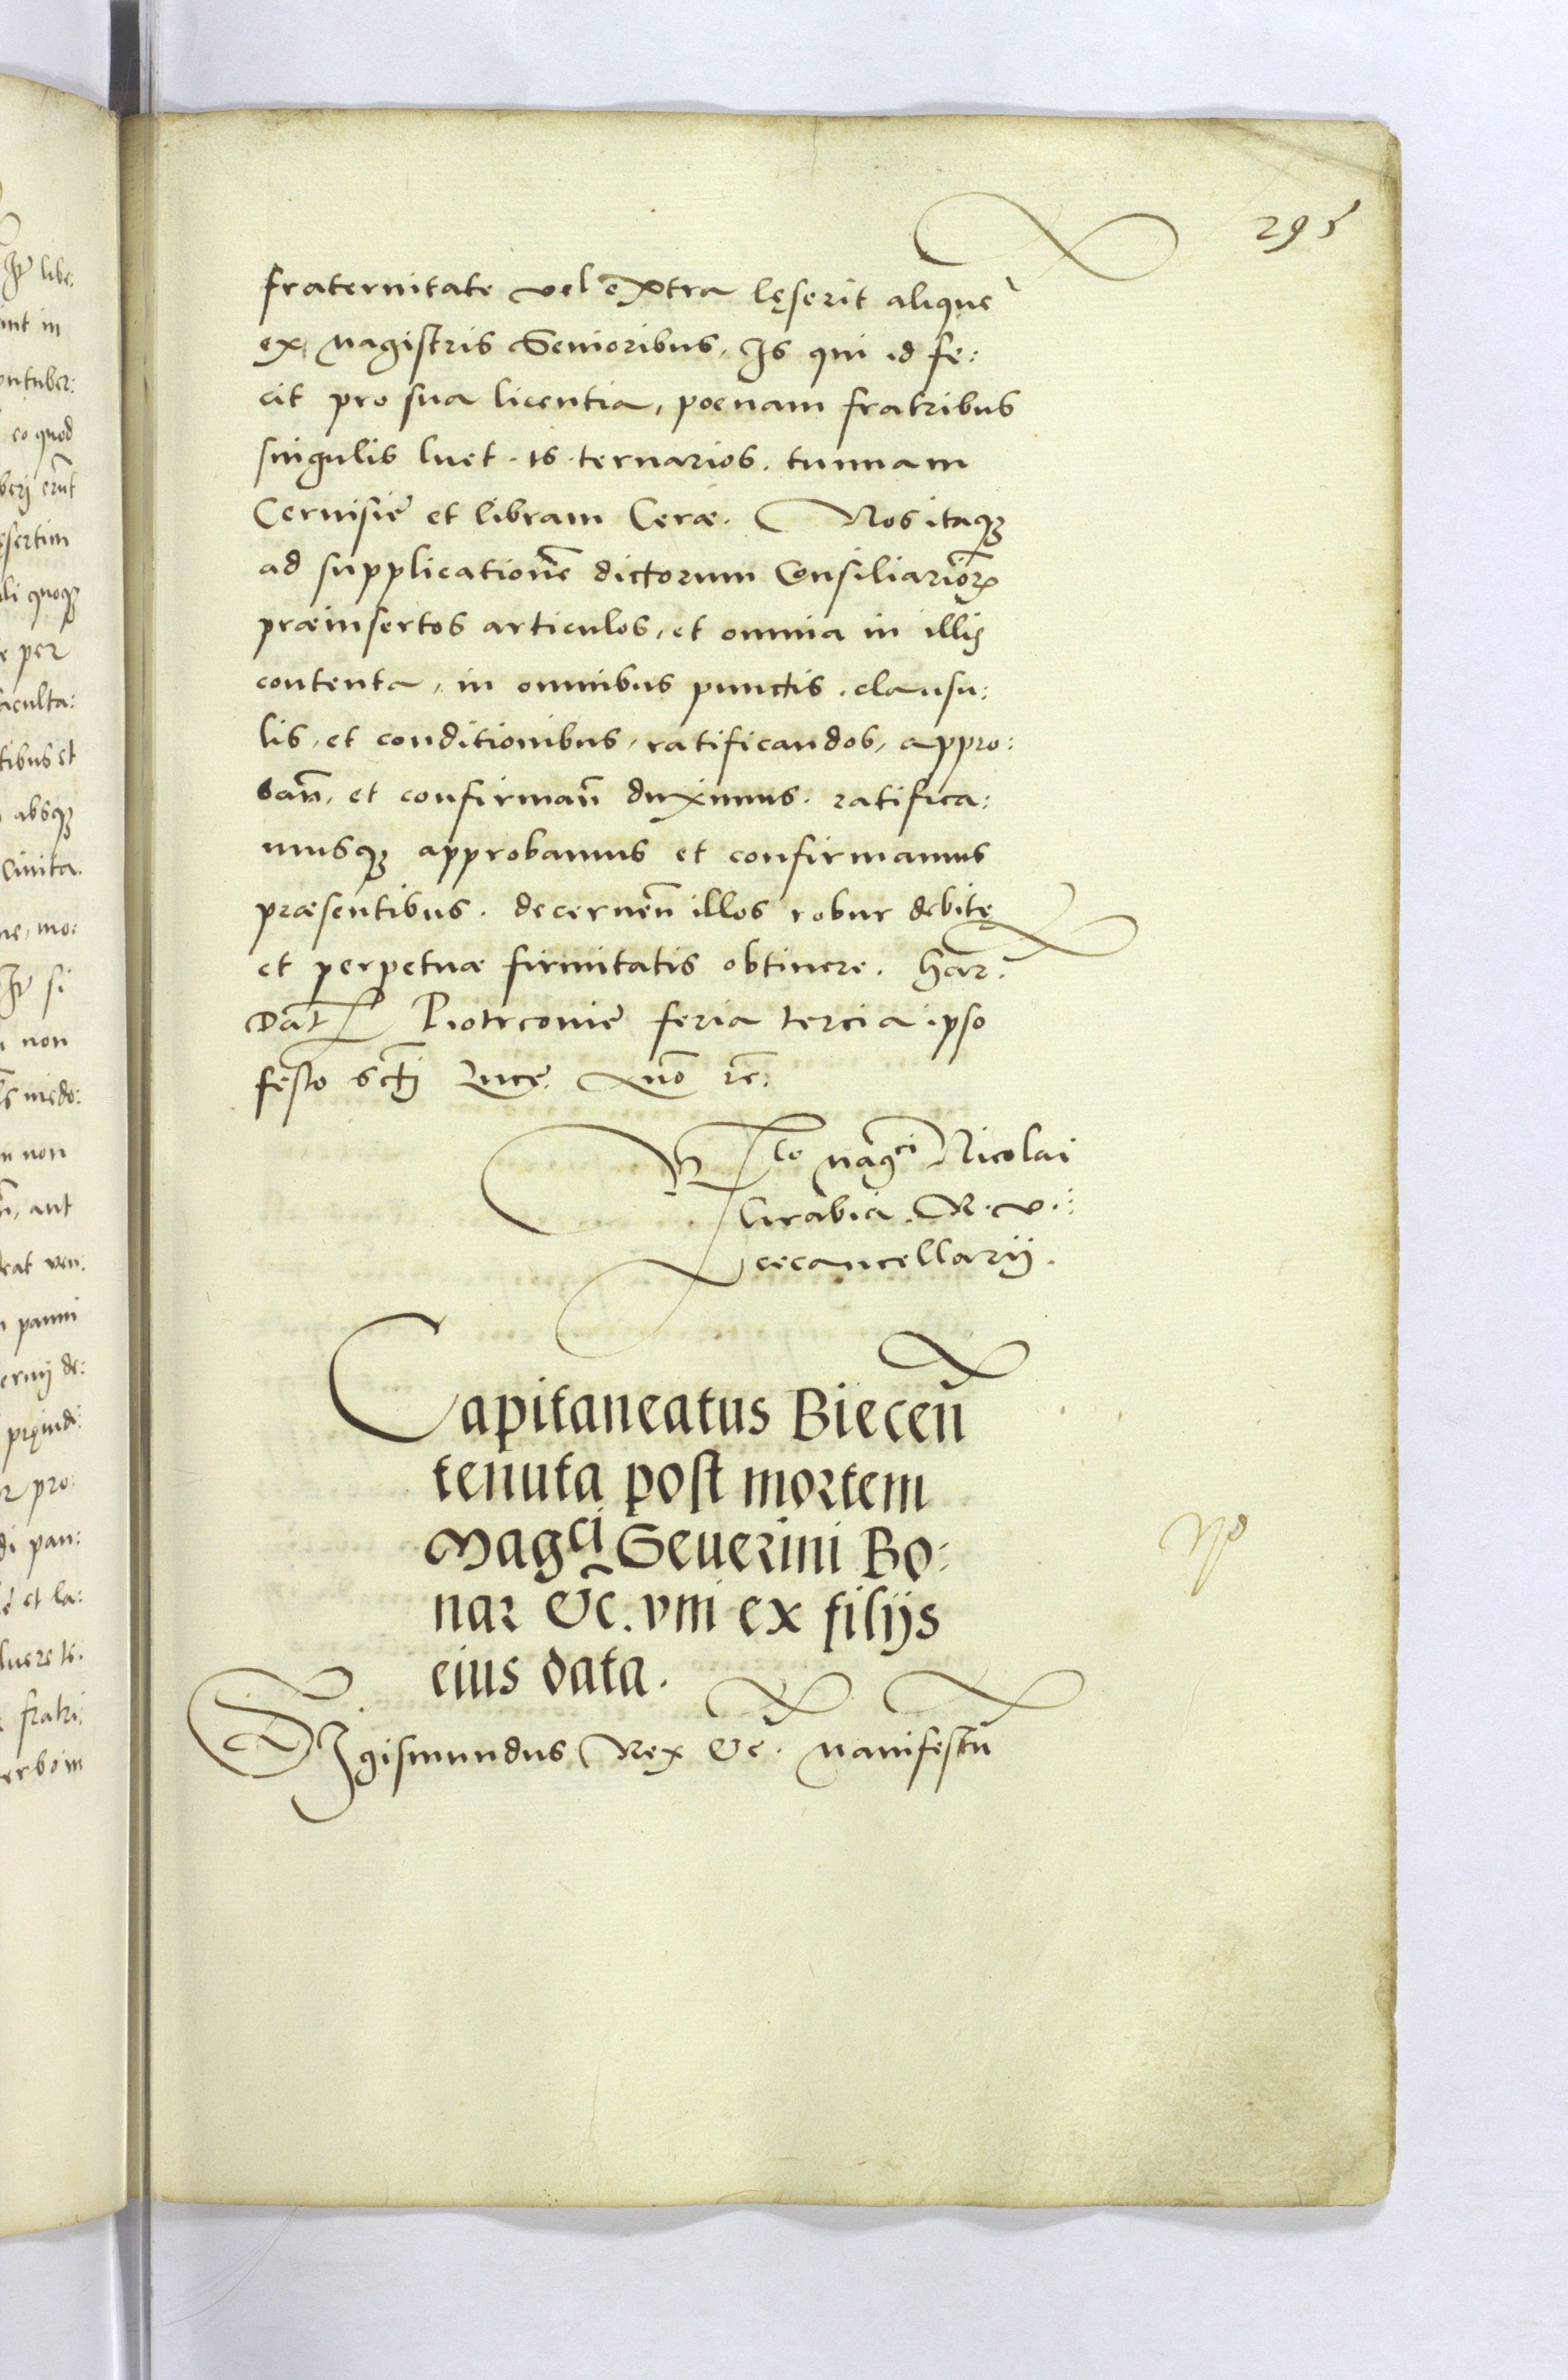 295
fraternitate vel extra lęserit aliquē
ex magistris Senioribus, Is qui id fe:
cit pro sua licentia, poenam fratribus
singulis luet . 16 . ternarios . tunnam
Ceruisie et libram Ceræ. Nos itaqꝫ
ad supplicationē dictorum Consiliarioꝝ
præinsertos articulos, et omnia in illis
contenta, in omnibus punctis . clausu:
lis, et conditionibus, ratificandos, appro:
ban̄, et confirman̄ duximus . ratifica:
musqꝫ approbamus et confirmamus
præsentibus . decernen̄ illos robur debitę
et perpetuæ firmitatis obtinere . Har̄.
Dat̄ Piotrconiē feria tercia ipso
festo sc̄ti Lucę. Anō
R͠lo mag^ci Nicolai
Grabia . R . v . :
cecancellarij .
Capitaneatus Biecen̄
tenuta post mortem
Mag^ci Seuerini Bo:
nar &c. vni ex filijs
eius data .
SIgismundus Rex &c . Manifestū